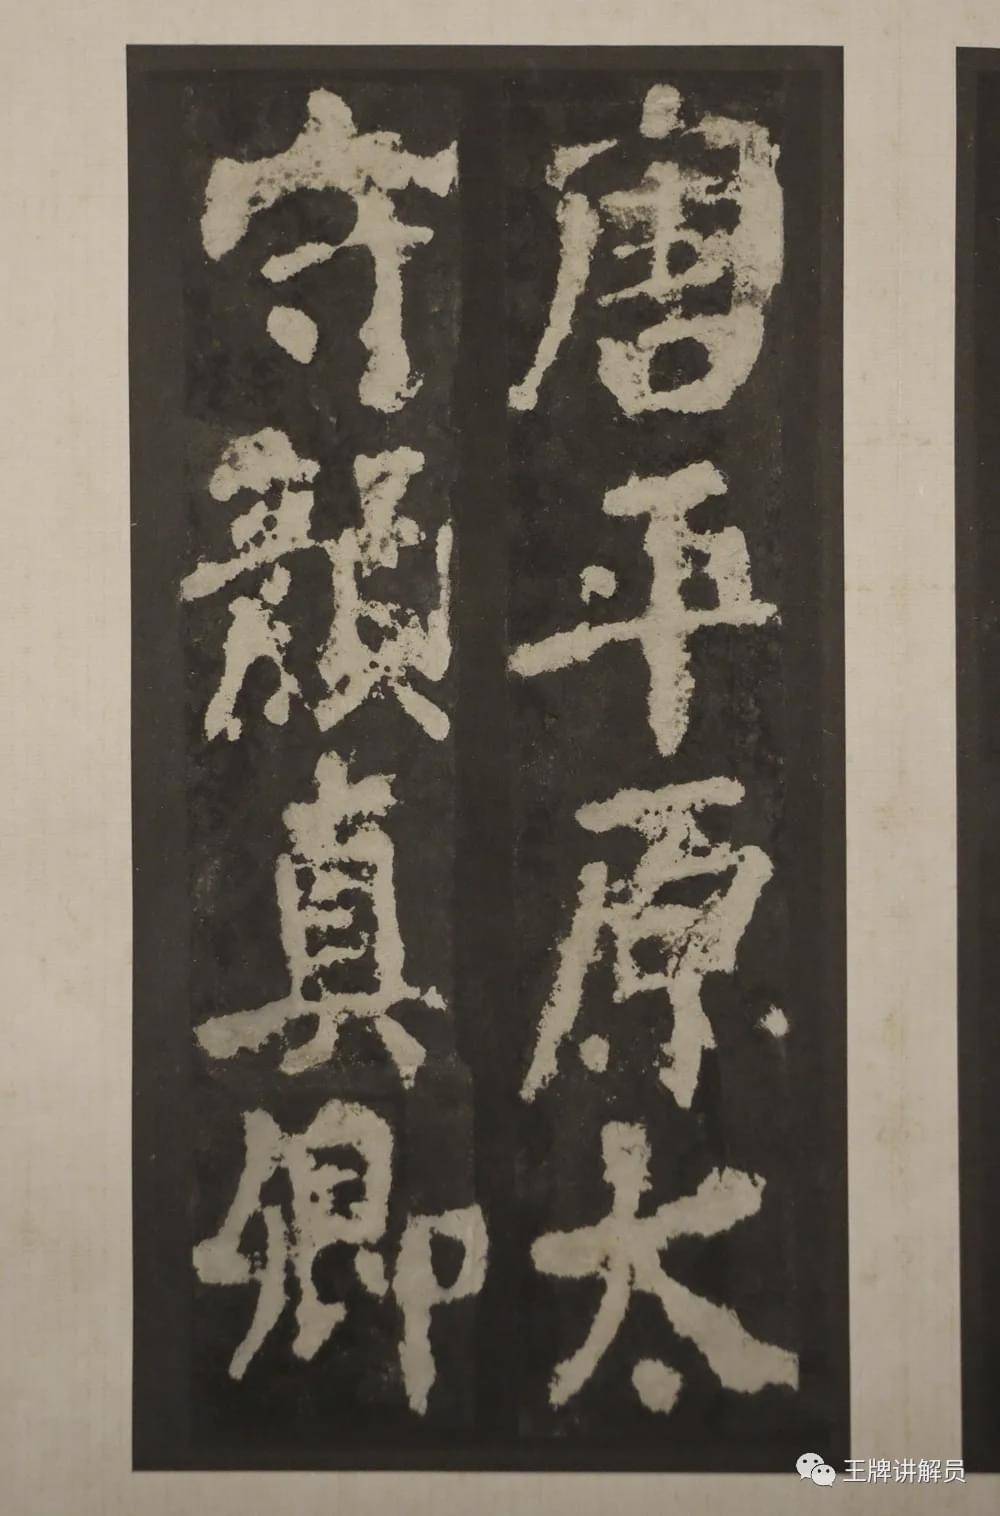 唐平原太
守颜真卿
王牌讲解员